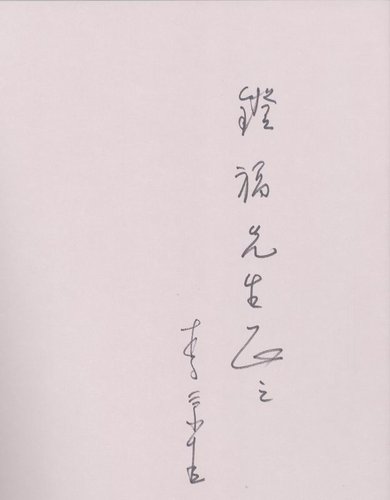 鐙福先生正之
李